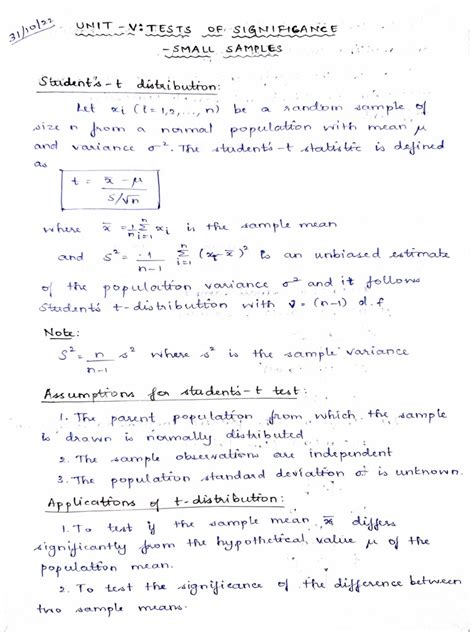 31/10/22
UNIT - V: TESTS OF SIGNIFICANCE
- SMALL SAMPLES
Student's - t distribution:
Let xi (i = 1,2, ..., n) be a random sample of
size n from a normal population with mean μ
and variance σ². The student's - t statistic is defined
as
t = (x̄ - μ) / (S/√n)
where x̄ = 1/n Σ_{i=1}^{n} xi is the sample mean
and S² = 1/(n-1) Σ_{i=1}^{n} (xi - x̄)² is an unbiased estimate
of the population variance σ² and it follows
Student's t-distribution with ν = (n-1) d.f
Note:
S² = n/(n-1) s² where s² is the sample variance
Assumptions for students - t test:
1. The parent population from which the sample
is drawn is normally distributed
2. The sample observations are independent
3. The population standard deviation σ is unknown.
Applications of t - distribution:
1. To test if the sample mean x̄ differs
significantly from the hypothetical value μ of the
population mean.
2. To test the significance of the difference between
two sample means.